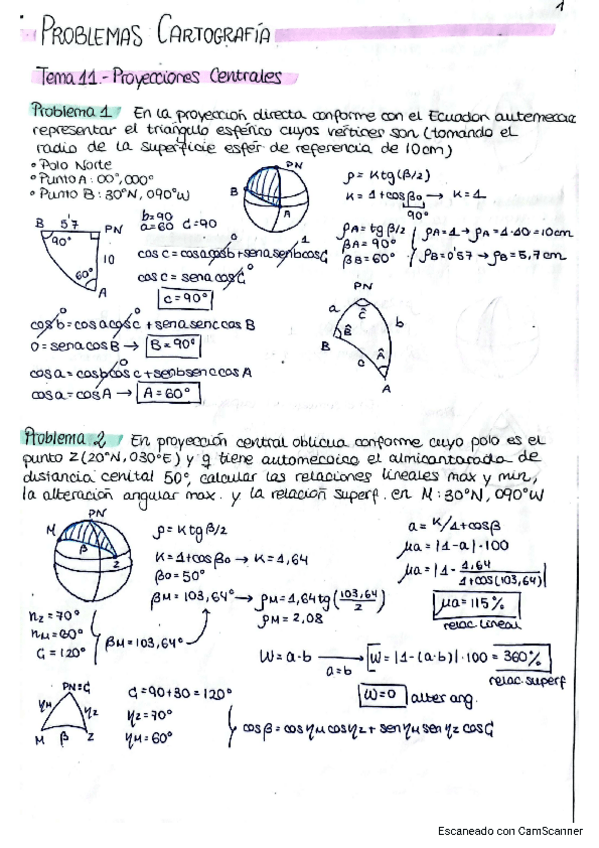 1
PROBLEMAS CARTOGRAFÍA
Tema 11.- Proyecciones Centrales
Problema 1 En la proyección directa conforme con el Ecuador automecoico
representar el triángulo esférico cuyos vértices son (tomando el
radio de la superficie esfér de referencia de 10cm)
° Polo Norte
° Punto A: 00°,000°
° Punto B: 30°N, 090°W
PN
B
A
ρ = Ktg(β/2)
K = 1+cosβ₀ → K=1
90°
ρA = tg β/2
βA = 90°
βB = 60°
ρA=1 → ρA = 1·10 = 10cm
ρB=0'57 → ρB = 5,7 cm
B 5'7 PN
90°
10
60°
A
b=90
a=60 C=90
cos c = cosacosb + senasenbcosC
0 1 0
cos c = senacosC
c=90°
cosb = cosacosc + senasenccosB
0 0
0 = senacosB → B=90°
cosa = cosbcosc + senbsenccosA
0
cosa = cosA → A=60°
PN
a Ĉ b
B B̂
c Â
A
Problema 2 En proyección central oblicua conforme cuyo polo es el
punto Z(20°N, 030°E) y q tiene automecoico el almicantarada de
distancia cenital 50°, calcular las relaciones lineales max y min,
la alteración angular max. y la relación superf. en M: 30°N, 090°W
PN
M
β
Z
ρ = Ktgβ/2
K = 1+cosβ₀ → K=1,64
β₀ = 50°
βM = 103,64° → ρM = 1,64tg(103,64/2)
ρM = 2,08
a = K/1+cosβ
μa = |1-a|·100
μa = |1 - 1,64/1+cos(103,64)|
μa = 115%
relac. lineal
nZ = 70°
nM = 60°
G = 120°
βM = 103,64°
W = a·b → W = |1-(a·b)|·100 = 360%
a=b
relac. superf
W=0 alter ang.
PN=G
ηM ηZ
M β Z
G = 90+30 = 120°
ηZ = 70°
ηM = 60°
cosβ = cosηMcosηZ + senηMsenηZcosG
Escaneado con CamScanner